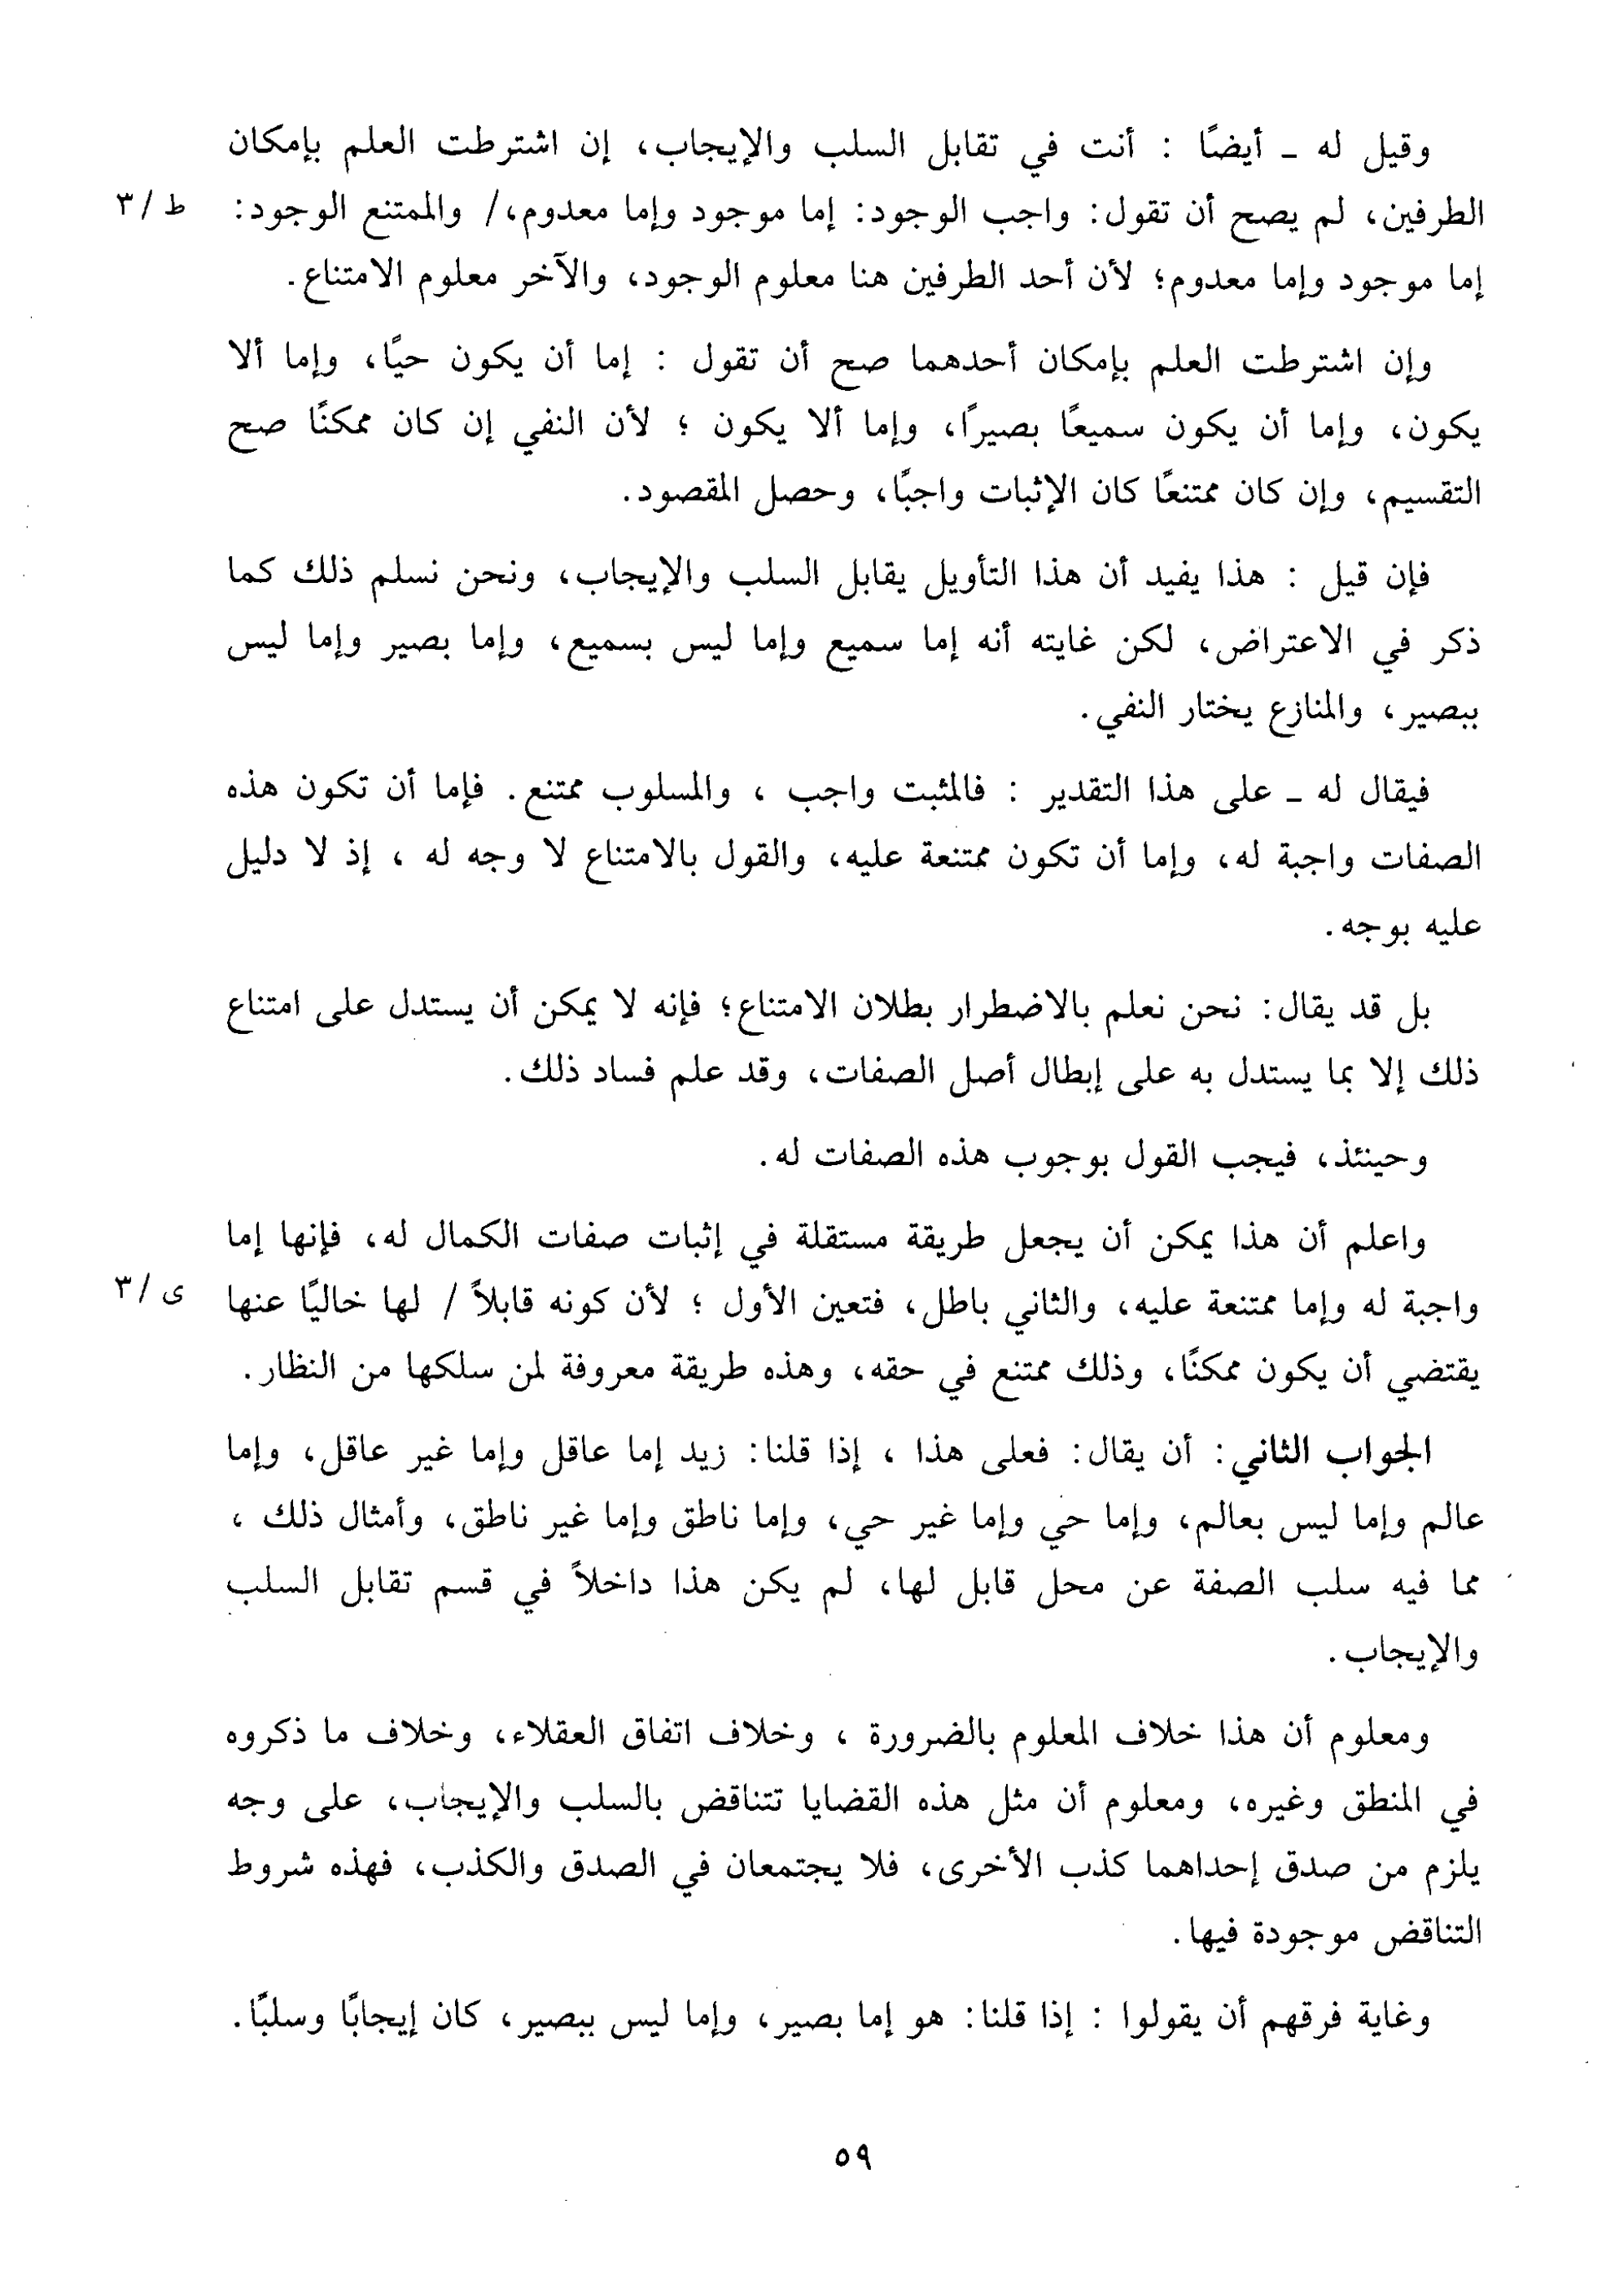 وقيل له ـ أيضًا : أنت في تقابل السلب والإيجاب، إن اشترطت العلم بإمكان
الطرفين، لم يصح أن تقول: واجب الوجود: إما موجود وإما معدوم،/ والممتنع الوجود: ط/ ٣
إما موجود وإما معدوم؛ لأن أحد الطرفين هنا معلوم الوجود، والآخر معلوم الامتناع.
وإن اشترطت العلم بإمكان أحدهما صح أن تقول : إما أن يكون حيًا، وإما ألا
يكون، وإما أن يكون سميعًا بصيرًا، وإما ألا يكون ؛ لأن النفي إن كان ممكنًا صح
التقسيم، وإن كان ممتنعًا كان الإثبات واجبًا، وحصل المقصود.
فإن قيل : هذا يفيد أن هذا التأويل يقابل السلب والإيجاب، ونحن نسلم ذلك كما
ذكر في الاعتراض، لكن غايته أنه إما سميع وإما ليس بسميع، وإما بصير وإما ليس
ببصير، والمنازع يختار النفي.
فيقال له ـ على هذا التقدير : فالمثبت واجب ، والمسلوب ممتنع. فإما أن تكون هذه
الصفات واجبة له، وإما أن تكون ممتنعة عليه، والقول بالامتناع لا وجه له ، إذ لا دليل
عليه بوجه.
بل قد يقال: نحن نعلم بالاضطرار بطلان الامتناع؛ فإنه لا يمكن أن يستدل على امتناع
ذلك إلا بما يستدل به على إبطال أصل الصفات، وقد علم فساد ذلك.
وحينئذ، فيجب القول بوجوب هذه الصفات له.
واعلم أن هذا يمكن أن يجعل طريقة مستقلة في إثبات صفات الكمال له، فإنها إما
واجبة له وإما ممتنعة عليه، والثاني باطل، فتعين الأول ؛ لأن كونه قابلاً / لها خاليًا عنها ى/ ٣
يقتضي أن يكون ممكنًا، وذلك ممتنع في حقه، وهذه طريقة معروفة لمن سلكها من النظار.
الجواب الثاني: أن يقال: فعلى هذا ، إذا قلنا: زيد إما عاقل وإما غير عاقل، وإما
عالم وإما ليس بعالم، وإما حي وإما غير حي، وإما ناطق وإما غير ناطق، وأمثال ذلك ،
مما فيه سلب الصفة عن محل قابل لها، لم يكن هذا داخلاً في قسم تقابل السلب
والإيجاب.
ومعلوم أن هذا خلاف المعلوم بالضرورة ، وخلاف اتفاق العقلاء، وخلاف ما ذكروه
في المنطق وغيره، ومعلوم أن مثل هذه القضايا تتناقض بالسلب والإيجاب، على وجه
يلزم من صدق إحداهما كذب الأخرى، فلا يجتمعان في الصدق والكذب، فهذه شروط
التناقض موجودة فيها.
وغاية فرقهم أن يقولوا : إذا قلنا: هو إما بصير، وإما ليس ببصير، كان إيجابًا وسلبًا.
٥٩